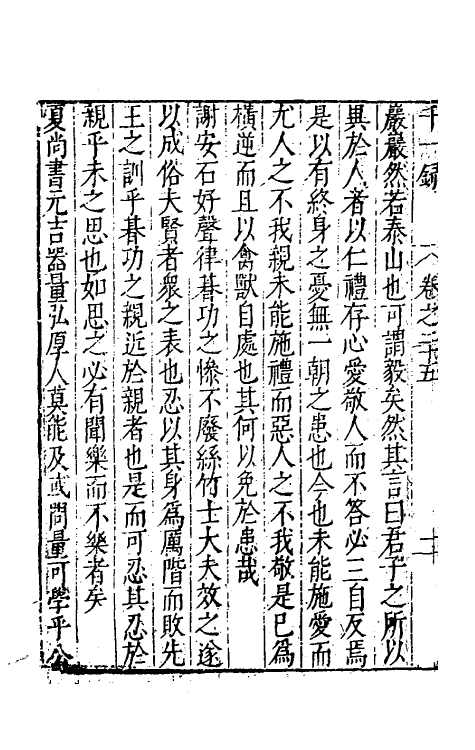 千一録 卷之二十五 十
巖巖然若泰山也可謂毅矣然其言曰君子之所以
異於人者以仁禮存心愛敬人而不答必三自反焉
是以有終身之憂無一朝之患也今也未能施愛而
尤人之不我親未能施禮而惡人之不我敬是已爲
橫逆而且以禽獸自處也其何以免於患哉
謝安石好聲律朞功之慘不廢絲竹士大夫效之遂
以成俗夫賢者衆之表也忍以其身爲厲階而敗先
王之訓乎朞功之親近於親者也是而可忍其忍於
親乎未之思也如思之必有聞樂而不樂者矣
夏尚書元吉器量弘厚人莫能及或問量可學乎公